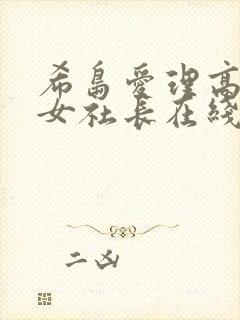 希島愛理高
女社长在綫
二凶